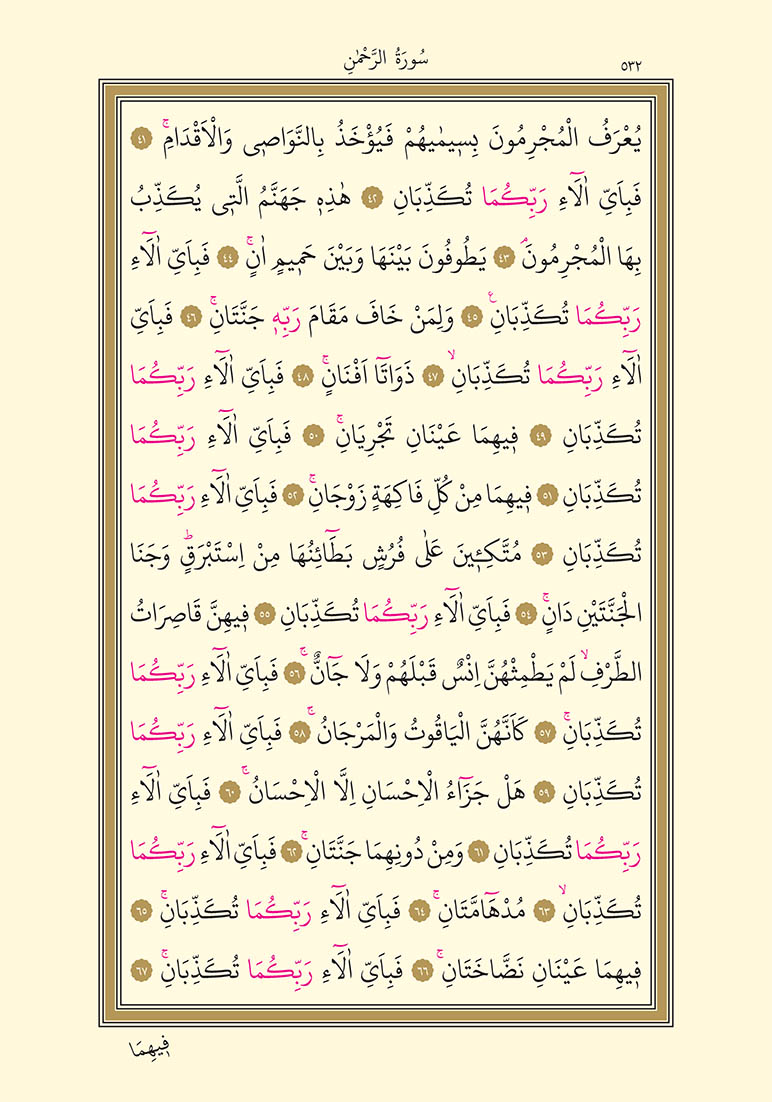 سُورَةُ الرَّحْمٰنِ
٥٣٢
يُعْرَفُ الْمُجْرِمُونَ بِسٖيمٰيهُمْ فَيُؤْخَذُ بِالنَّوَاصٖى وَالْاَقْدَامِۚ ٤١
فَبِاَىِّ اٰلَٓاءِ رَبِّكُمَا تُكَذِّبَانِ ٤٢ هٰذِهٖ جَهَنَّمُ الَّتٖى يُكَذِّبُ
بِهَا الْمُجْرِمُونَۘ ٤٣ يَطُوفُونَ بَيْنَهَا وَبَيْنَ حَمٖيمٍ اٰنٍۚ ٤٤ فَبِاَىِّ اٰلَٓاءِ
رَبِّكُمَا تُكَذِّبَانِ ع ٤٥ وَلِمَنْ خَافَ مَقَامَ رَبِّهٖ جَنَّتَانِۚ ٤٦ فَبِاَىِّ
اٰلَٓاءِ رَبِّكُمَا تُكَذِّبَانِۙ ٤٧ ذَوَاتَٓا اَفْنَانٍۚ ٤٨ فَبِاَىِّ اٰلَٓاءِ رَبِّكُمَا
تُكَذِّبَانِ ٤٩ فٖيهِمَا عَيْنَانِ تَجْرِيَانِۚ ٥٠ فَبِاَىِّ اٰلَٓاءِ رَبِّكُمَا
تُكَذِّبَانِ ٥١ فٖيهِمَا مِنْ كُلِّ فَاكِهَةٍ زَوْجَانِۚ ٥٢ فَبِاَىِّ اٰلَٓاءِ رَبِّكُمَا
تُكَذِّبَانِ ٥٣ مُتَّكِـٖٔينَ عَلٰى فُرُشٍ بَطَٓائِنُهَا مِنْ اِسْتَبْرَقٍؕ وَجَنَا
الْجَنَّتَيْنِ دَانٍۚ ٥٤ فَبِاَىِّ اٰلَٓاءِ رَبِّكُمَا تُكَذِّبَانِ ٥٥ فٖيهِنَّ قَاصِرَاتُ
الطَّرْفِۙ لَمْ يَطْمِثْهُنَّ اِنْسٌ قَبْلَهُمْ وَلَا جَٓانٌّۚ ٥٦ فَبِاَىِّ اٰلَٓاءِ رَبِّكُمَا
تُكَذِّبَانِۚ ٥٧ كَاَنَّهُنَّ الْيَاقُوتُ وَالْمَرْجَانُۚ ٥٨ فَبِاَىِّ اٰلَٓاءِ رَبِّكُمَا
تُكَذِّبَانِ ٥٩ هَلْ جَزَٓاءُ الْاِحْسَانِ اِلَّا الْاِحْسَانُۚ ٦٠ فَبِاَىِّ اٰلَٓاءِ
رَبِّكُمَا تُكَذِّبَانِ ٦١ وَمِنْ دُونِهِمَا جَنَّتَانِۚ ٦٢ فَبِاَىِّ اٰلَٓاءِ رَبِّكُمَا
تُكَذِّبَانِۙ ٦٣ مُدْهَٓامَّتَانِۚ ٦٤ فَبِاَىِّ اٰلَٓاءِ رَبِّكُمَا تُكَذِّبَانِۚ ٦٥
فٖيهِمَا عَيْنَانِ نَضَّاخَتَانِۚ ٦٦ فَبِاَىِّ اٰلَٓاءِ رَبِّكُمَا تُكَذِّبَانِۚ ٦٧
فٖيهِمَا